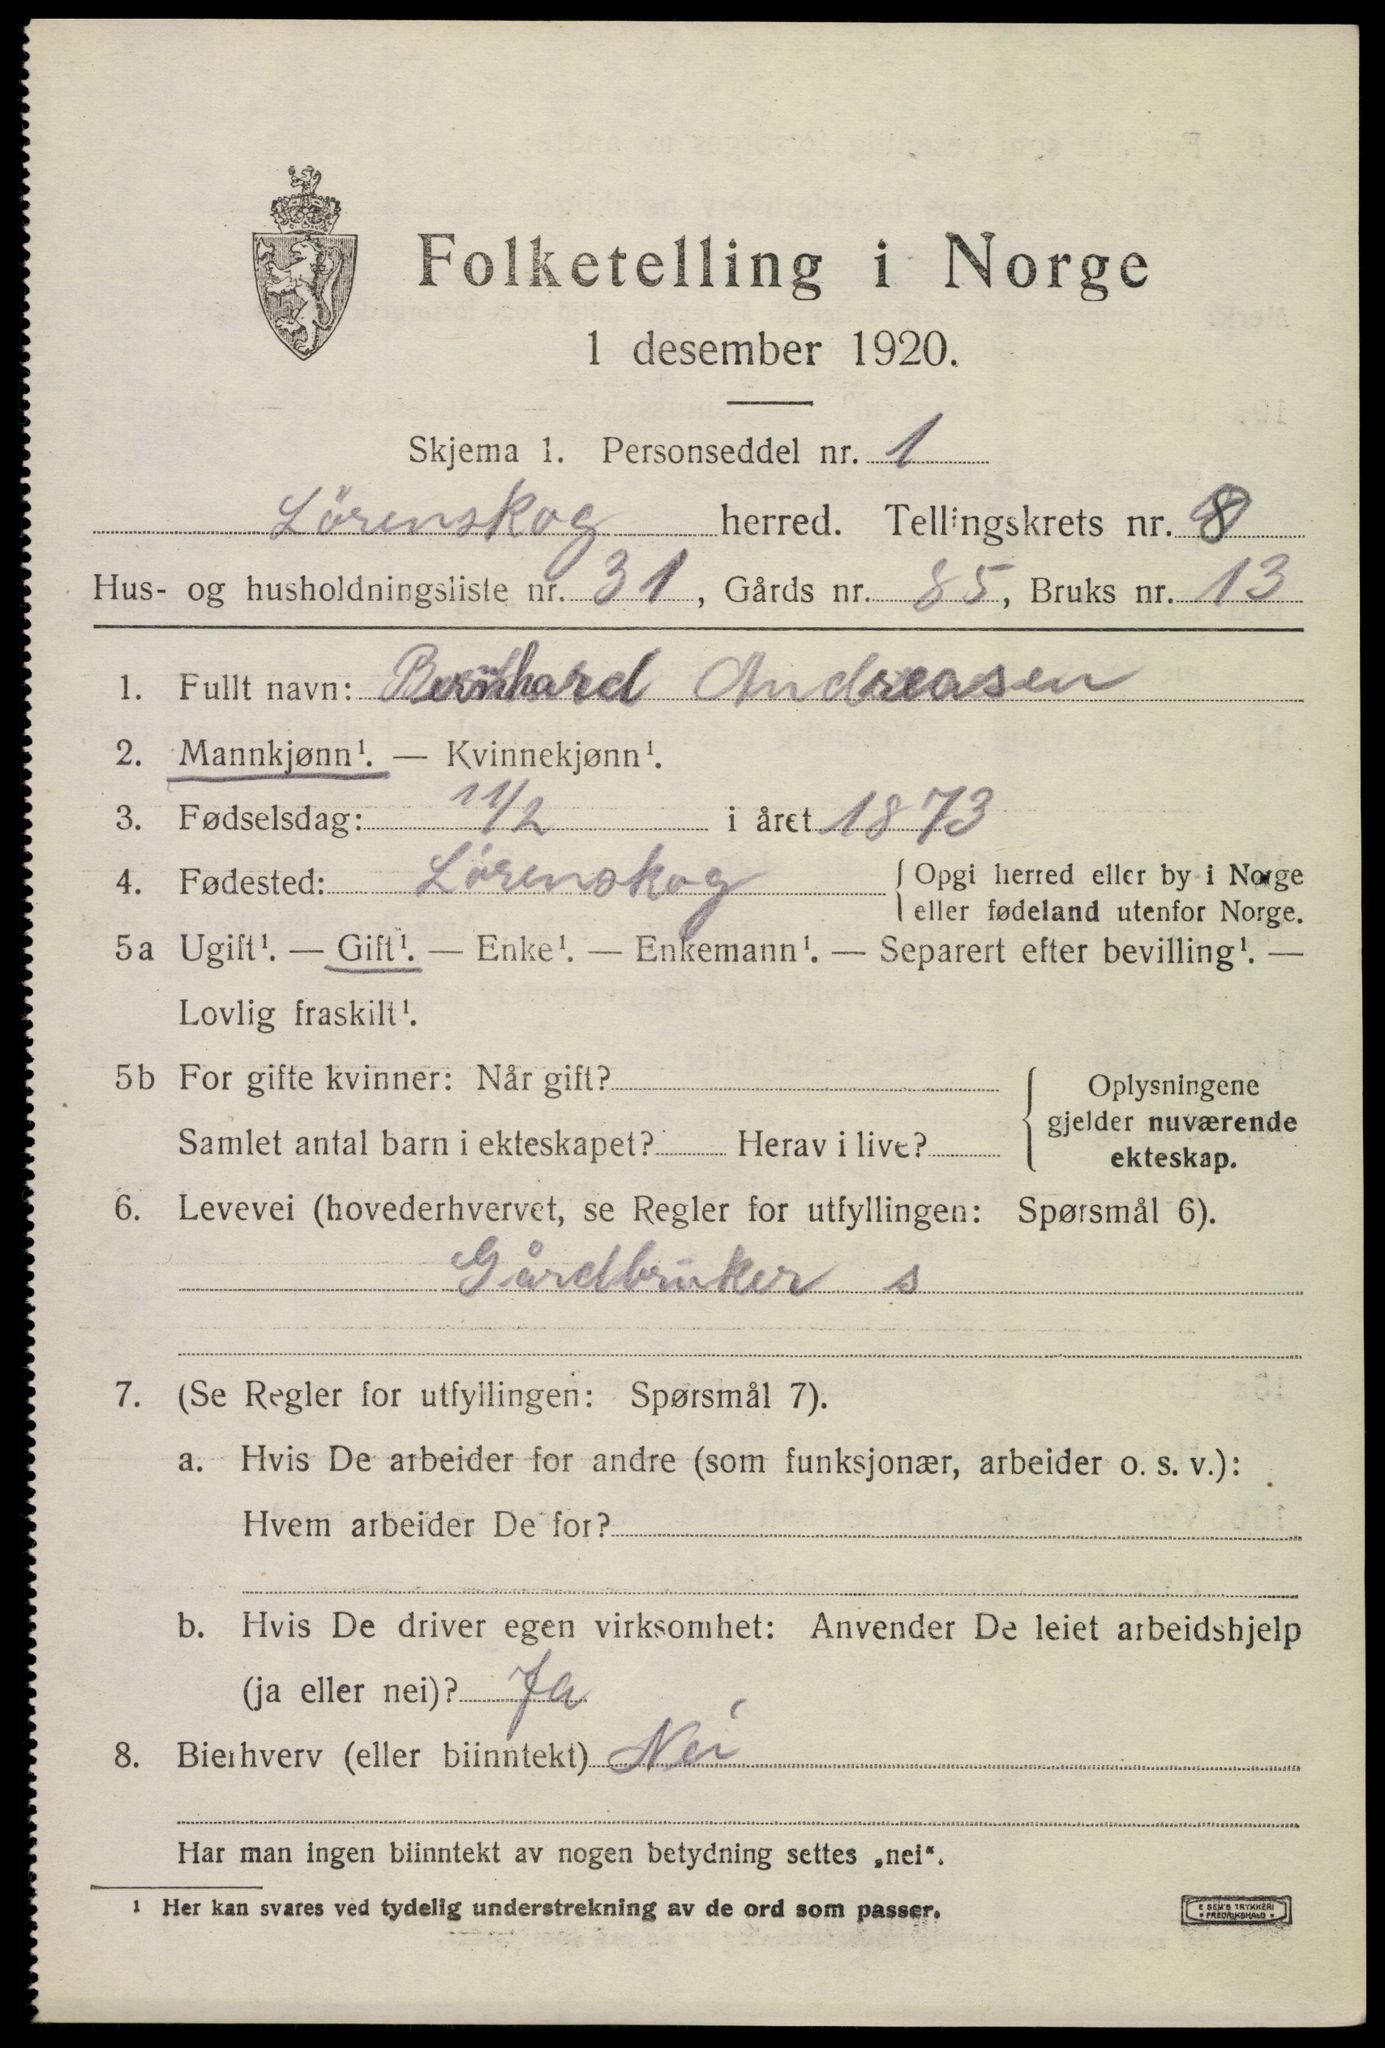 Folketelling i Norge
1 desember 1920.
Skjema 1. Personseddel nr. 1
Lörenskog herred. Tellingskrets nr. 8
Hus- og husholdningsliste nr. 31, Gårds nr. 85, Bruks nr. 13
1. Fullt navn: Bernhard Andreasen
2. Mannkjønn¹. — Kvinnekjønn¹.
3. Fødselsdag: 11/2 i året 1873
4. Fødested: Lörenskog { Opgi herred eller by i Norge
eller fødeland utenfor Norge.
5a Ugift¹. — Gift¹. — Enke¹. — Enkemann¹. — Separert efter bevilling¹. —
Lovlig fraskilt¹.
5b For gifte kvinner: Når gift?
Samlet antal barn i ekteskapet? Herav i live?
{ Oplysningene
gjelder nuværende
ekteskap.
6. Levevei (hovederhvervet, se Regler for utfyllingen: Spørsmål 6).
Gårdbruker s
7. (Se Regler for utfyllingen: Spørsmål 7).
a. Hvis De arbeider for andre (som funksjonær, arbeider o. s. v.):
Hvem arbeider De for?
b. Hvis De driver egen virksomhet: Anvender De leiet arbeidshjelp
(ja eller nei)? Ja
8. Bierhverv (eller biinntekt) Nei
Har man ingen biinntekt av nogen betydning settes „nei“.
¹ Her kan svares ved tydelig understrekning av de ord som passer.
E SEM'S TRYKKERI
• FREDRIKSHALD •